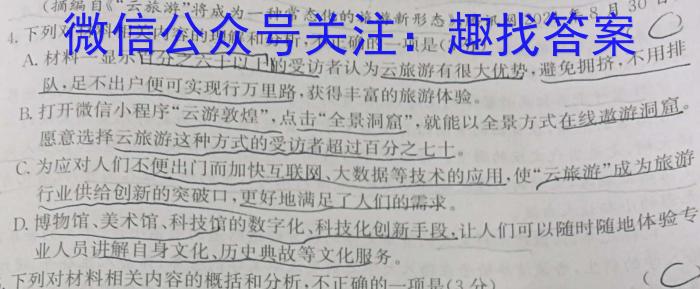 (摘编自《“云旅游”将成为一种常态化的旅游新形态
8月30日
微信公众号关注：趣找答案
4. 下列对材料相关内容的理解和分析,不正确的一项是(
A. 材料一显示百分之六十以上的受访者认为云旅游有很大优势,避免拥挤,不用排
队,足不出户便可实现行万里路,获得丰富的旅游体验。
B. 打开微信小程序“云游敦煌”,点击“全景洞窟”,就能以全景方式在线遨游洞窟。
愿意选择云旅游这种方式的受访者超过百分之七十。
C. 为应对人们不便出门而加快互联网、大数据等技术的应用,使“云旅游”成为旅游
行业供给创新的突破口,更好地满足了人们的需求。
D. 博物馆、美术馆、科技馆的数字化、科技化创新手段,让人们可以随时随地体验专
业人员讲解自身文化、历史典故等文化服务。
下列对材料相关内容的概括和分析,不正确的一项是(3分) ( C